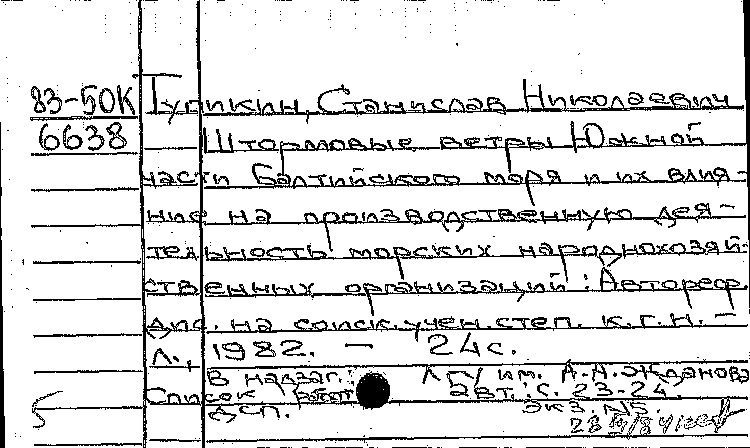 83-50К Тупикин, Станислав Николаевич
6638 Штормовые ветры Южной
части Балтийского моря и их влия-
ние на производственную дея-
тельность морских народнохозяй-
ственных организаций : Автореф.
дис. на соиск. учен. степ. к.г.н. -
Л., 1982. - 24 с.
В надзаг.: ЛГУ им. А.А. Жданова
Список работ авт.: с. 23-24.
ДСП. Экз. №5.
5